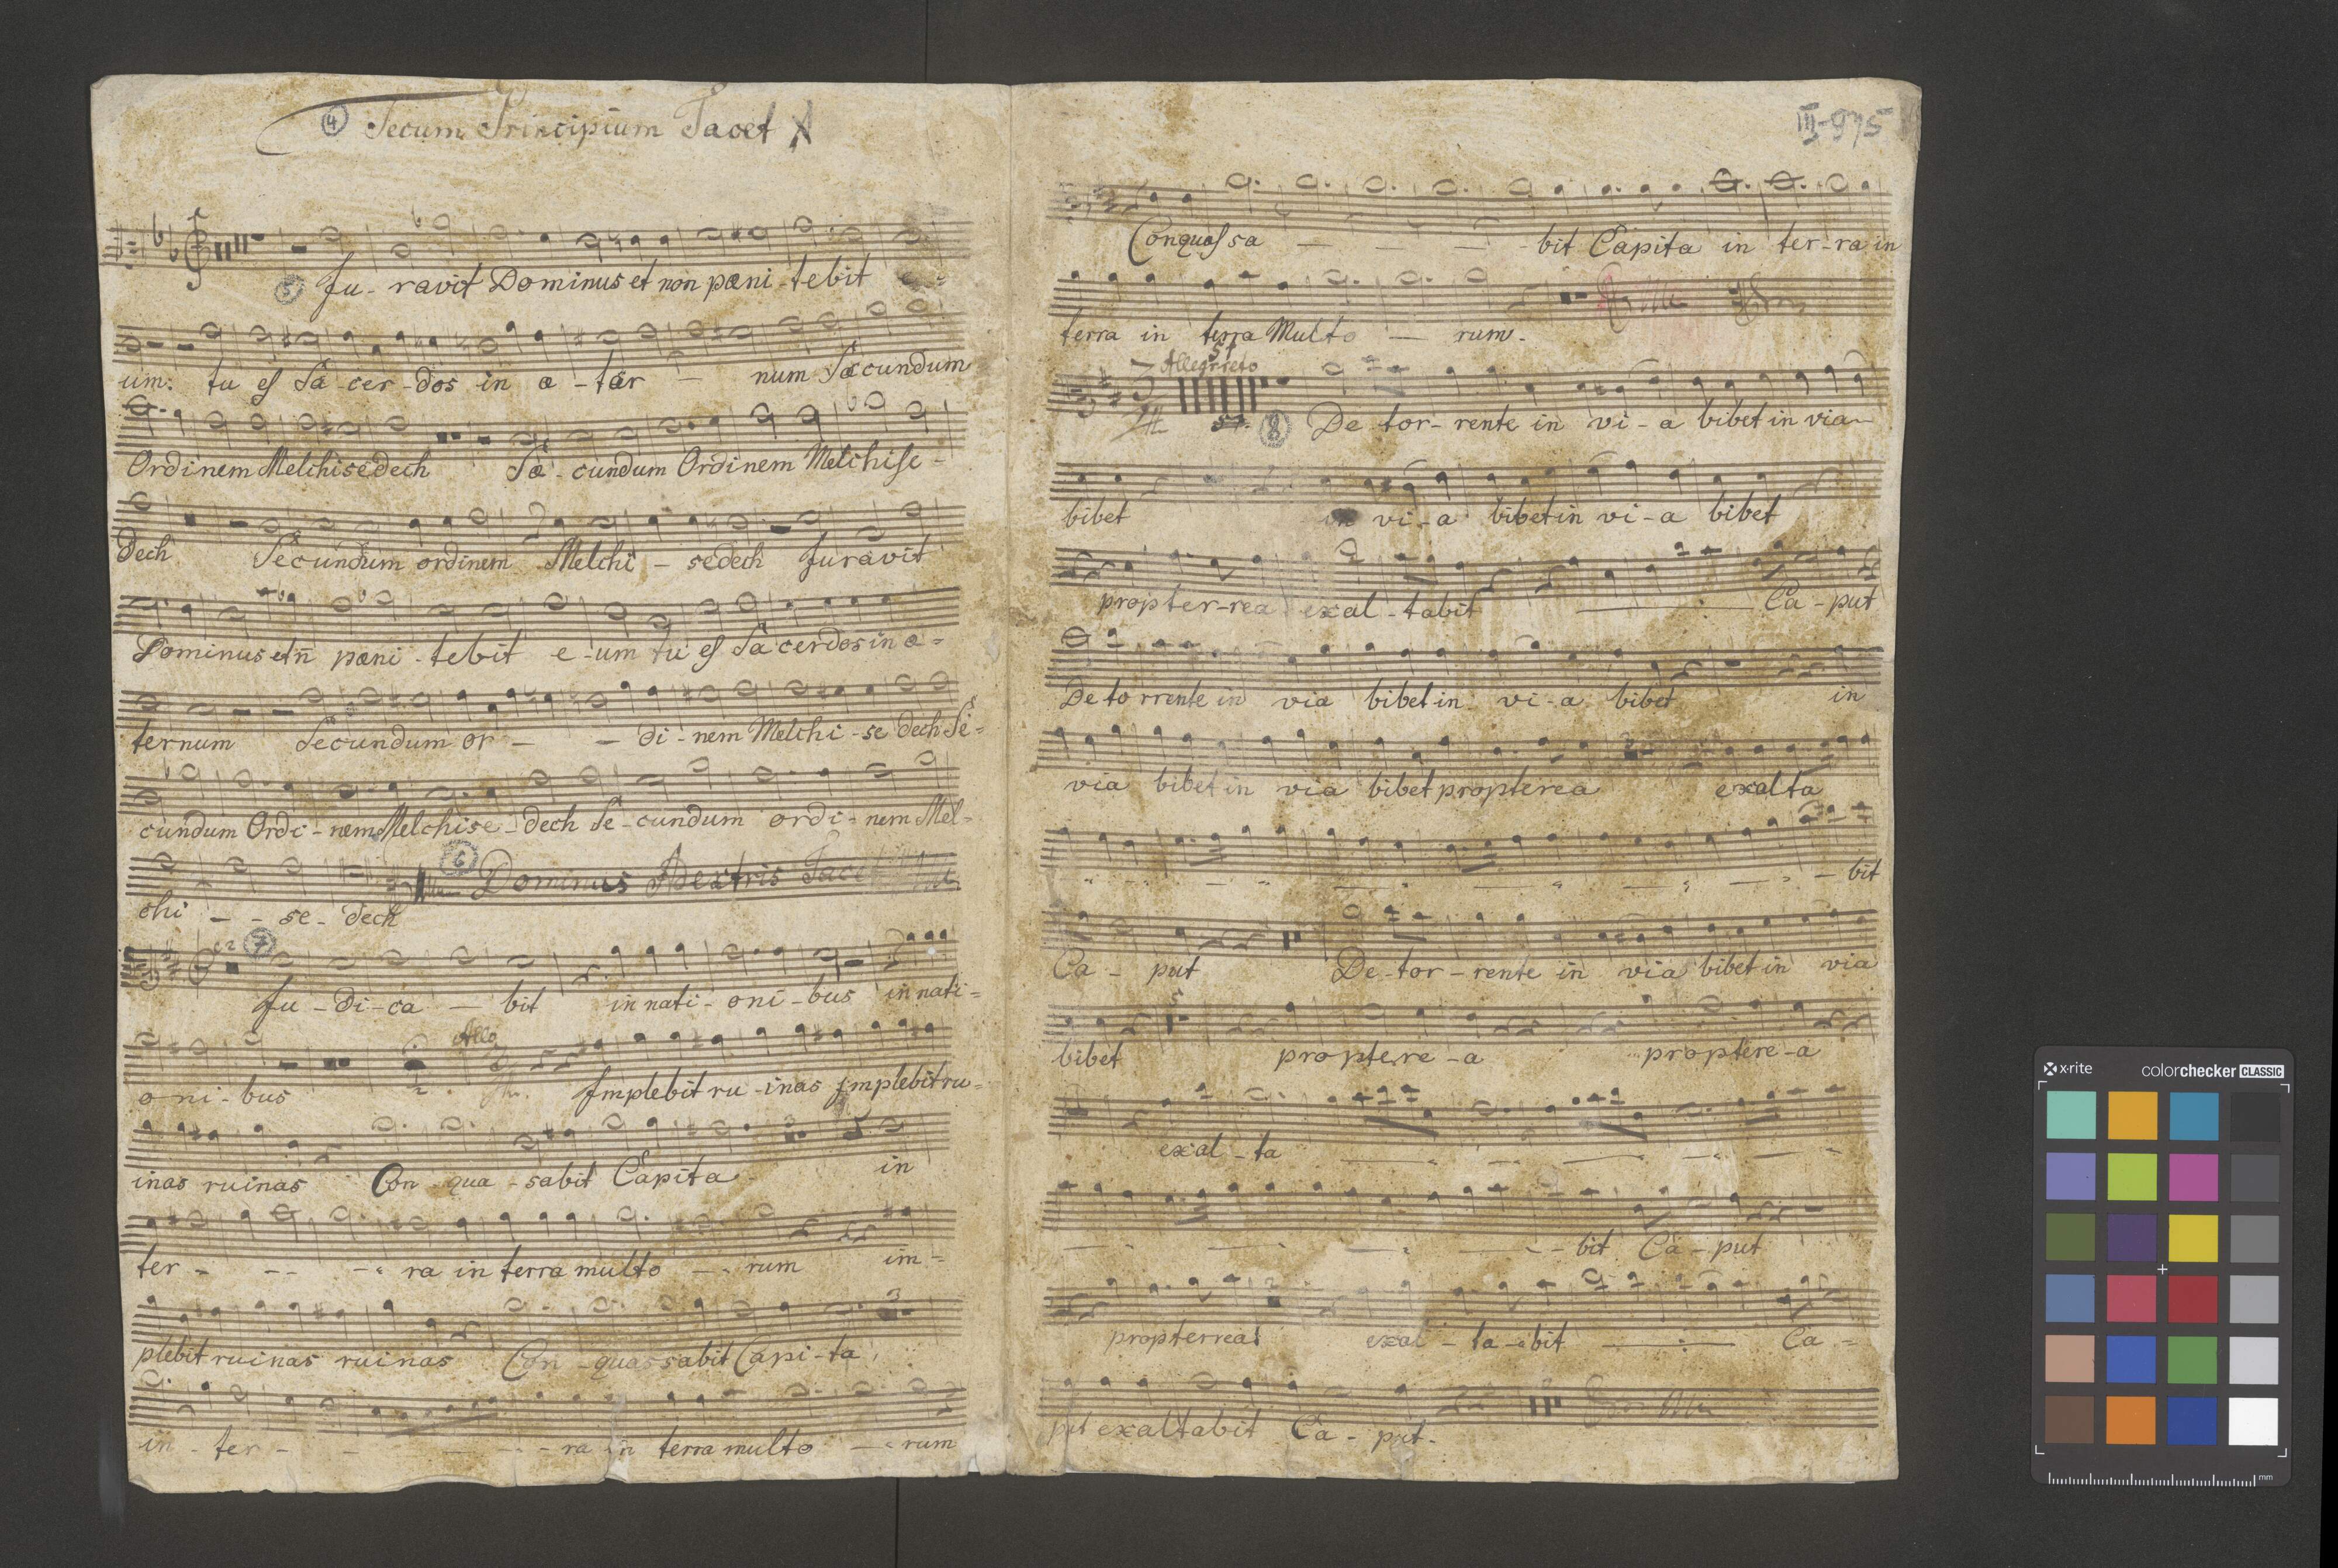 ④ Tecum Principium Tacet X
⑤ Ju - ravit Dominus et non pæni - tebit e -
um: tu es Sa - cer - dos in æ - tær - num Sæcundum
Ordinem Melchisedech Sæ - cundum Ordinem Melchise -
dech Secundum ordinem Melchi - sedech Juravit
Dominus et n̄ pæni - tebit e - um tu es Sacerdos in æ =
ternum Secundum or - - di - nem Melchi - se dech Se =
cundum Ordi - nem Melchise - dech Se - cundum ordi - nem Mel =
chi - - se - dech ⑥ Dominus A Dextris Tacet
⑦
Ju - di - ca - bit in nati - oni - bus in nati =
Allo
oni - bus Implebit ru - inas implebit ru =
inas ruinas Con - qua - sabit Capita in
ter - - - - ra in terra multo - - rum im =
plebit ruinas ruinas Con - quassabit Capi - ta
in - ter - - - - ra in terra multo - - rum
III-975
Conquassa - - - - bit Capita in ter - ra in
terra in terra Multo - rum.
Allegreto
51
⑧ De tor - rente in vi - a bibet in via
bibet in vi - a bibet in vi - a bibet
propter - rea exal - tabit Ca - put
De to rrente in via bibet in vi - a bibet in
via bibet in via bibet propterea exalta
- - - - bit
Ca - put De - tor - rente in via bibet in via
bibet propte re - a propte re - a
exal - ta
- - - - bit Ca - put
propterrea exal - ta - bit Ca =
put exaltabit Ca - put.
x·rite colorchecker CLASSIC
mm